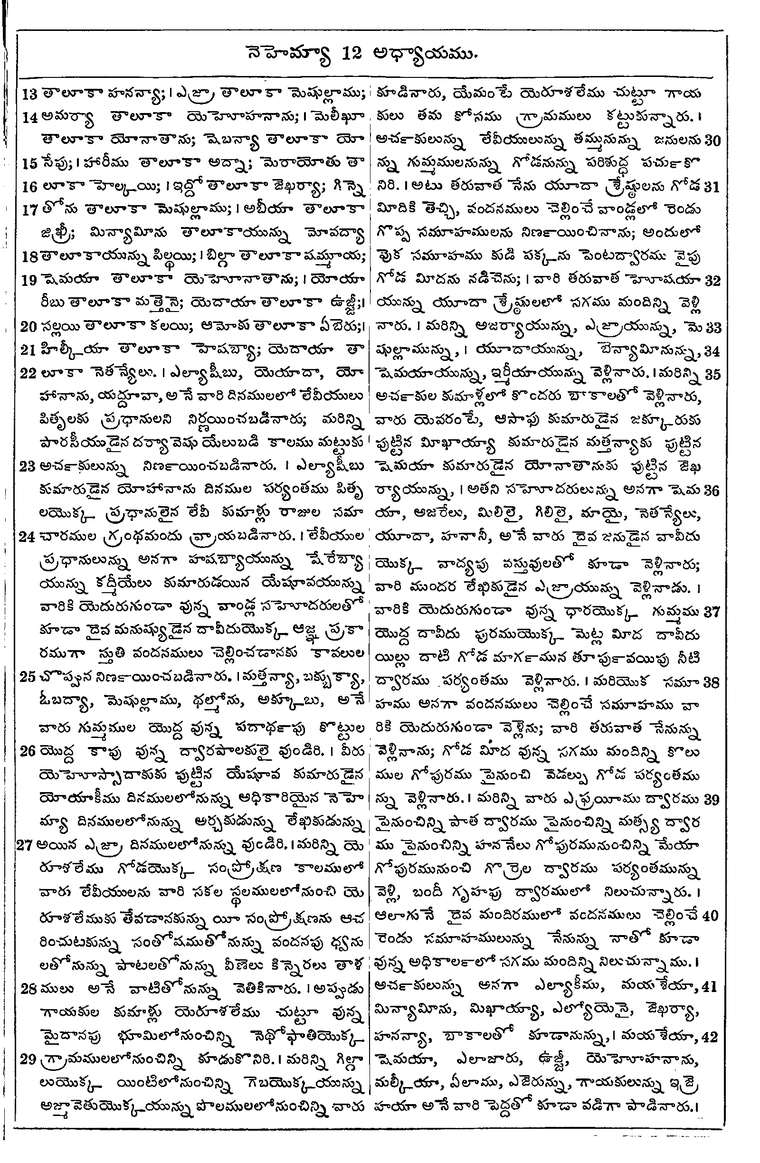 నెహెమ్యా 12 అధ్యాయము.
13 తాలూకా హనన్యా; । ఎజ్రా తాలూకా మెషుల్లాము;
14 అమర్యా తాలూకా యెహూహనాను; । మెలీఖూ
తాలూకా యోనాతాను; షెబన్యా తాలూకా యో
15 సేపు; । హారీము తాలూకా అద్నా; మెరాయోతు తా
16 లూకా హెల్కయి; । ఇద్దో తాలూకా జెఖర్యా; గిన్నె
17 తోను తాలూకా మెషుల్లాము; । అబీయా తాలూకా
జిఖ్రీ; మిన్యామీను తాలూకాయున్ను మోవద్యా
18 తాలూకాయున్ను పిల్థయి; । బిల్గా తాలూకా షమ్మూయ;
19 షెమయా తాలూకా యెహూనాతాను; । యోయా
రీబు తాలూకా మత్తెనై; యెదాయా తాలూకా ఉజ్జీ; ।
20 సల్లయి తాలూకా కలయి; ఆమోకు తాలూకా ఏబెరు; ।
21 హిల్కీయా తాలూకా హెషబ్యా; యెదాయా తా
22 లూకా నెతన్యేలు. । ఎల్యాషీబు, యెయాదా, యో
హానాను, యద్దూవా, అనే వారి దినములలో లేవీయులు
పితృలకు ప్రధానులని నిర్ణయించబడినారు; మరిన్ని
పారసీయుడైన దర్యావెషు యేలుబడి కాలము మట్టుకు
23 అర్చకులున్ను నిర్ణయించబడినారు. । ఎల్యాషీబు
కుమారుడైన యోహానాను దినముల పర్యంతము పితృ
లయొక్క ప్రధానులైన లేవీ కుమాళ్లు రాజుల సమా
24 చారముల గ్రంథమందు వ్రాయబడినారు. । లేవీయుల
ప్రధానులున్ను అనగా హషబ్యాయున్ను షేరేబ్యా
యున్ను కద్మీయేలు కుమారుడయిన యేషూవయున్ను
వారికి యెదురుగుండా వున్న వాండ్ల సహెూదరులతో
కూడా దైవ మనుష్యుడైన దావీదుయొక్క ఆజ్ఞ ప్రకా
రముగా స్తుతి వందనములు చెల్లించడానకు కావలుల
25 చొప్పున నిర్ణయించబడినారు. । మత్తన్యా, బక్బుక్యా,
ఓబద్యా, మెషుల్లాము, థల్మోను, అక్కూబు, అనే
వారు గుమ్మముల యొద్ద వున్న పదార్థపు కొట్టుల
26 యొద్ద కాపు వున్న ద్వారపాలకులై వుండిరి. । వీరు
యెహూస్సాదాకుకు పుట్టిన యేషూవ కుమారుడైన
యోయాకీము దినములలోనున్ను అధికారియైన నెహె
మ్యా దినములలోనున్ను అర్చకుడున్ను లేఖికుడున్ను
27 అయిన ఎజ్రా దినములలోనున్ను వుండిరి. । మరిన్ని యె
రూశలేము గోడయొక్క సంప్రోక్షణ కాలములో
వారు లేవీయులను వారి సకల స్థలములలోనుంచి యె
రూశలేముకు తేవడానకున్ను యీ సంప్రోక్షణను ఆచ
రించుటకున్ను సంతోషముతోనున్ను వందనపు ధ్వను
లతోనున్ను పాటలతోనున్ను వీణెలు కిన్నెరలు తాళ
28 ములు అనే వాటితోనున్ను వెతికినారు. । అప్పుడు
గాయకుల కుమాళ్లు యెరూశలేము చుట్టూ వున్న
మైదానపు భూమిలోనుంచిన్ని నెథోఫాతియొక్క
29 గ్రామములలోనుంచిన్ని కూడుకొనిరి. । మరిన్ని గిల్గా
లుయొక్క యింటిలోనుంచిన్ని గెబయొక్కయున్ను
అజ్మావెతుయొక్కయున్ను పొలములలోనుంచిన్ని వారు
కూడినారు, యేమంటే యెరూశలేము చుట్టూ గాయ
కులు తమ కోసము గ్రామములు కట్టుకున్నారు. ।
అర్చకులున్ను లేవీయులున్ను తమ్మునున్ను జనులను 30
న్ను గుమ్మములనున్ను గోడనున్ను పరిశుద్ధ పర్చుకొ
నిరి. । అటు తరువాత నేను యూదా శ్రేష్ఠులను గోడ 31
మీదికి తెచ్చి, వందనములు చెల్లించే వాండ్లలో రెండు
గొప్ప సమూహములను నిర్ణయించినాను; అందులో
వుక సమూహము కుడి పక్కను పెంటద్వారము వైపు
గోడ మీదను నడిచెను; । వారి తరువాత హెూషయా 32
యున్ను యూదా శ్రేష్ఠులలో సగము మందిన్ని వెళ్లి
నారు. । మరిన్ని అజర్యాయున్ను, ఎజ్రాయున్ను, మె 33
షుల్లామున్ను, । యూదాయున్ను, బెన్యామీనున్ను, 34
షెమయాయున్ను, ఇర్మీయాయున్ను వెళ్లినారు. । మరిన్ని 35
అర్చకుల కుమాళ్లలో కొందరు బాకాలతో వెళ్లినారు,
వారు యెవరంటే, ఆసాఫు కుమారుడైన జక్కూరుకు
పుట్టిన మీఖాయ్యా కుమారుడైన మత్తన్యాకు పుట్టిన
షెమయా కుమారుడైన యోనాతానుకు పుట్టిన జెఖ
ర్యాయున్ను, । అతని సహెూదరులున్ను అనగా షెమ 36
యా, అజరేలు, మిలిలై, గిలిలై, మాయై, నెతన్యేలు,
యూదా, హనానీ, అనే వారు దైవ జనుడైన దావీదు
యొక్క వాద్యపు వస్తువులతో కూడా వెళ్లినారు;
వారి ముందర లేఖికుడైన ఎజ్రాయున్ను వెళ్లినాడు. ।
వారికి యెదురుగుండా వున్న ధారయొక్క గుమ్మము 37
యొద్ద దావీదు పురముయొక్క మెట్ల మీద దావీదు
యిల్లు దాటి గోడ మార్గమున తూర్పువయిపు నీటి
ద్వారము పర్యంతము వెళ్లినారు. । మరియొక సమూ 38
హము అనగా వందనములు చెల్లించే సమూహము వా
రికి యెదురుగుండా వెళ్లెను; వారి తరువాత నేనున్ను
వెళ్లినాను; గోడ మీద వున్న సగము మందిన్ని కొలు
ముల గోపురము పైనుంచి వెడల్పు గోడ పర్యంతము
న్ను వెళ్లినారు. । మరిన్ని వారు ఎఫ్రయీము ద్వారము 39
పైనుంచిన్ని పాత ద్వారము పైనుంచిన్ని మత్స్య ద్వార
ము పైనుంచిన్ని హననేలు గోపురమునుంచిన్ని మేయా
గోపురమునుంచి గొర్రెల ద్వారము పర్యంతమున్ను
వెళ్లి, బందీ గృహపు ద్వారములో నిలుచున్నారు. ।
ఆలాగునే దైవ మందిరములో వందనములు చెల్లించే 40
రెండు సమూహములున్ను నేనున్ను నాతో కూడా
వున్న అధికార్లలో సగము మందిన్ని నిలుచున్నాము. ।
అర్చకులున్ను అనగా ఎల్యాకీము, మయశేయా, 41
మిన్యామీను, మిఖాయ్యా, ఎల్యోయెనై, జెఖర్యా,
హనన్యా, బాకాలతో కూడానున్ను, । మయశేయా, 42
షెమయా, ఎలాజారు, ఉజ్జీ, యెహూహనాను,
మల్కీయా, ఏలాము, ఎజెరున్ను, గాయకులున్ను ఇజ్రె
హయా అనే వారి పెద్దతో కూడా వడిగా పాడినారు. ।